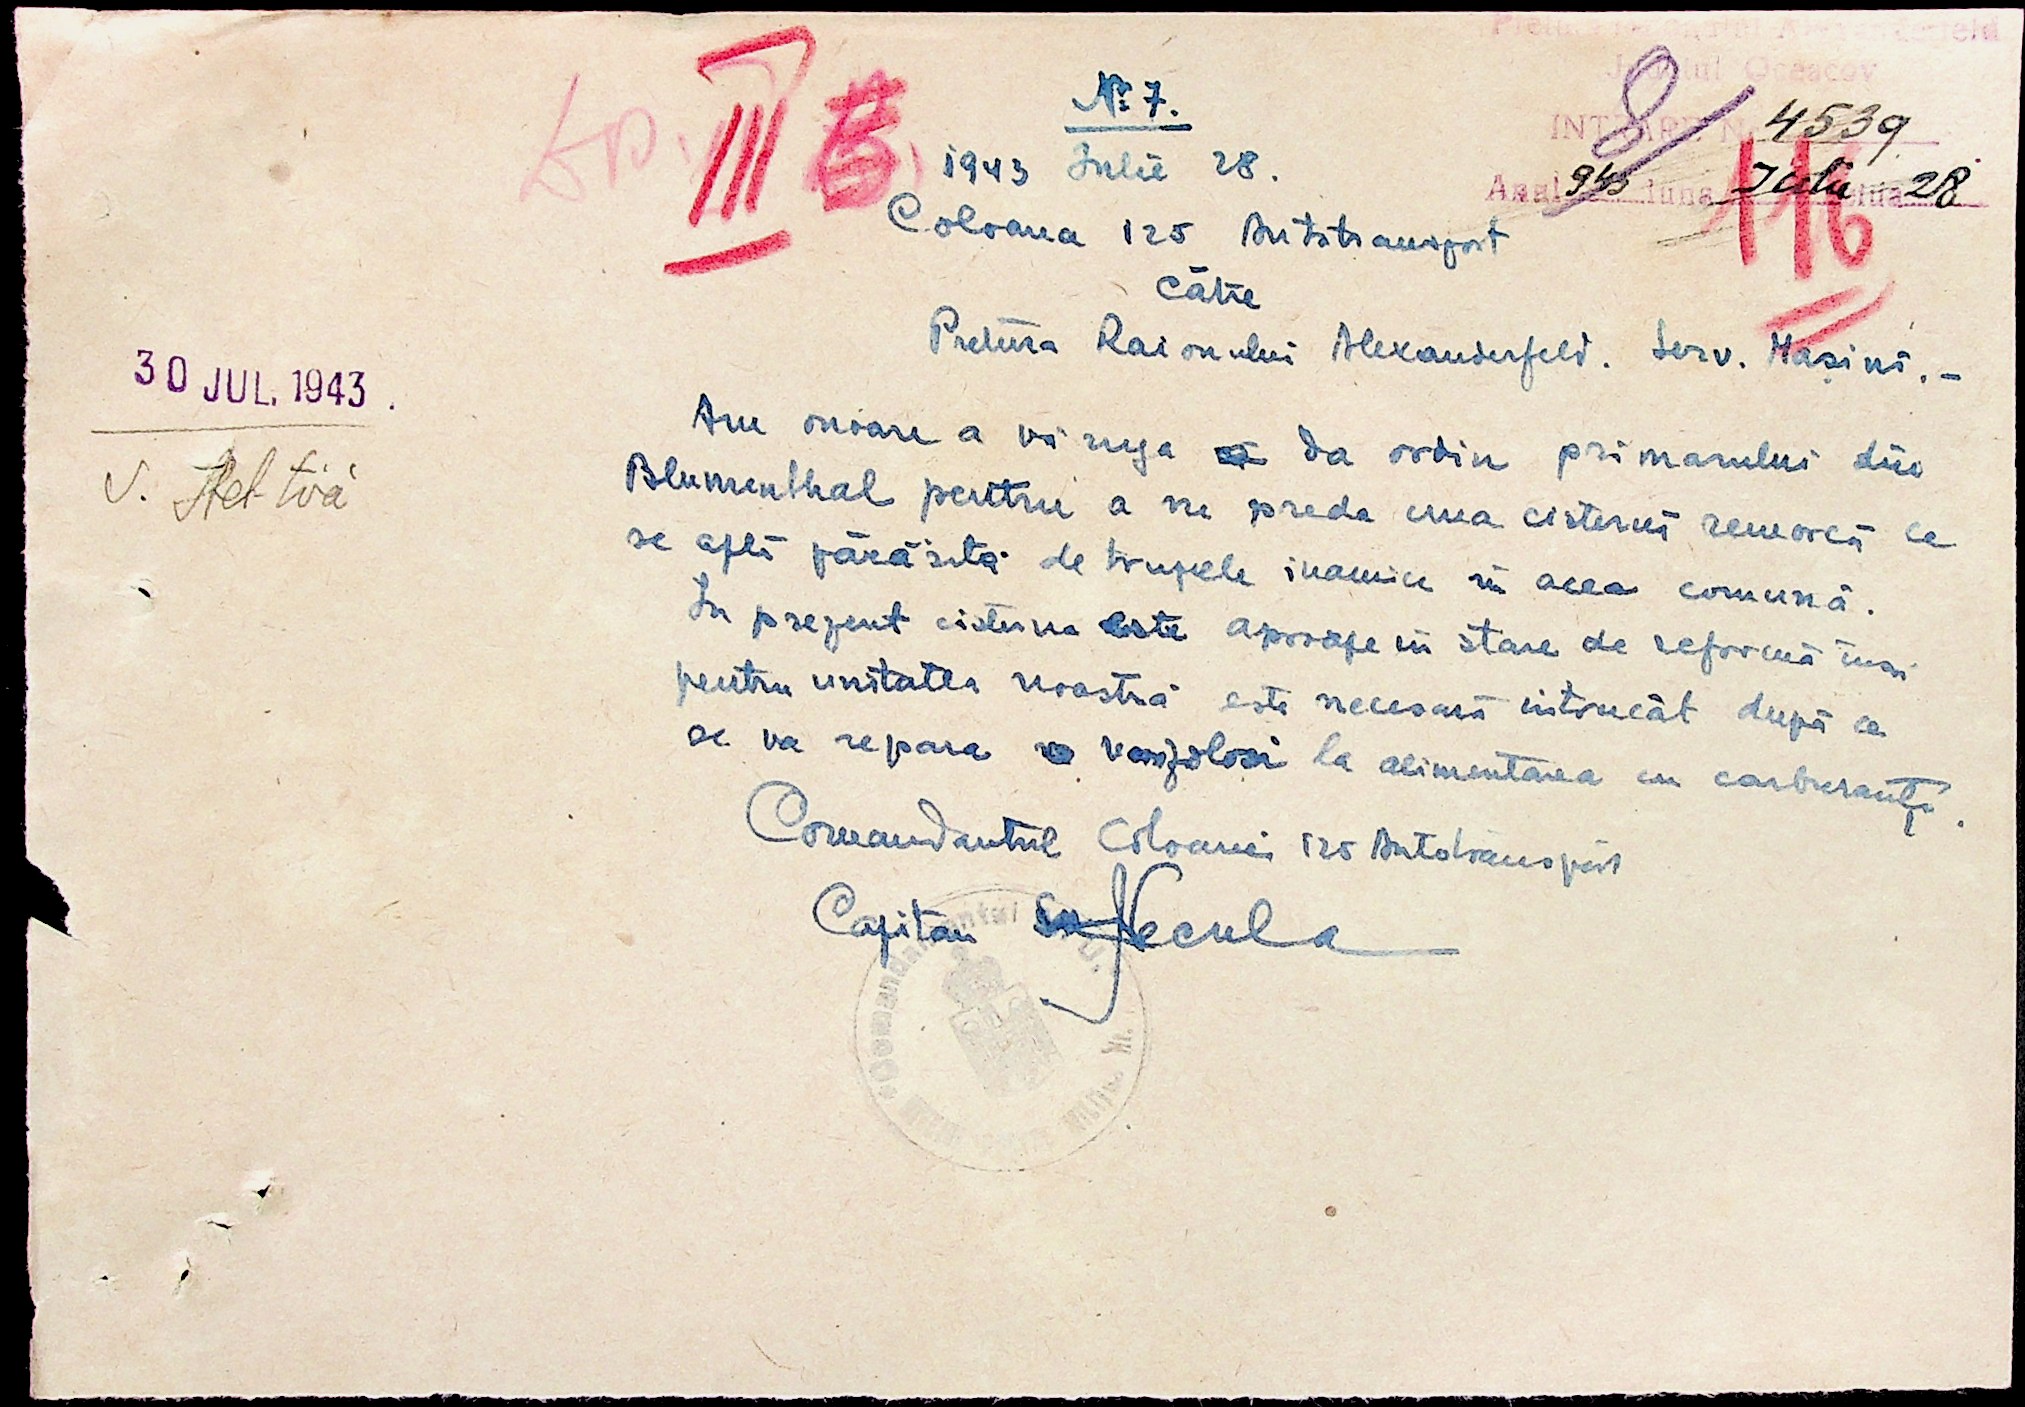 Pretura Raionului Alexanderfeld
Județul Oceacov
INTRARE N. 4539
Anul 943 luna Iulie ziua 28
8
116
III B
No 7.
1943 Iulie 28.
Coloana 125 Autotransport
Către
Pretura Raionului Alexanderfeld. Serv. Mașini.-
30 JUL. 1943.
Am onoare a vă ruga să da ordin primarului din
Blumenthal pentru a ne preda una cisternă remorcă ce
se află părăsită de trupele inamice în acea comună.
În prezent cisterna este aproape în stare de reformă însă
pentru unitatea noastră este necesară întrucât după ce
se va repara va folosi la alimentarea cu carburanți.
Comandantul Coloanei 125 Autotransport
Capitan Necula